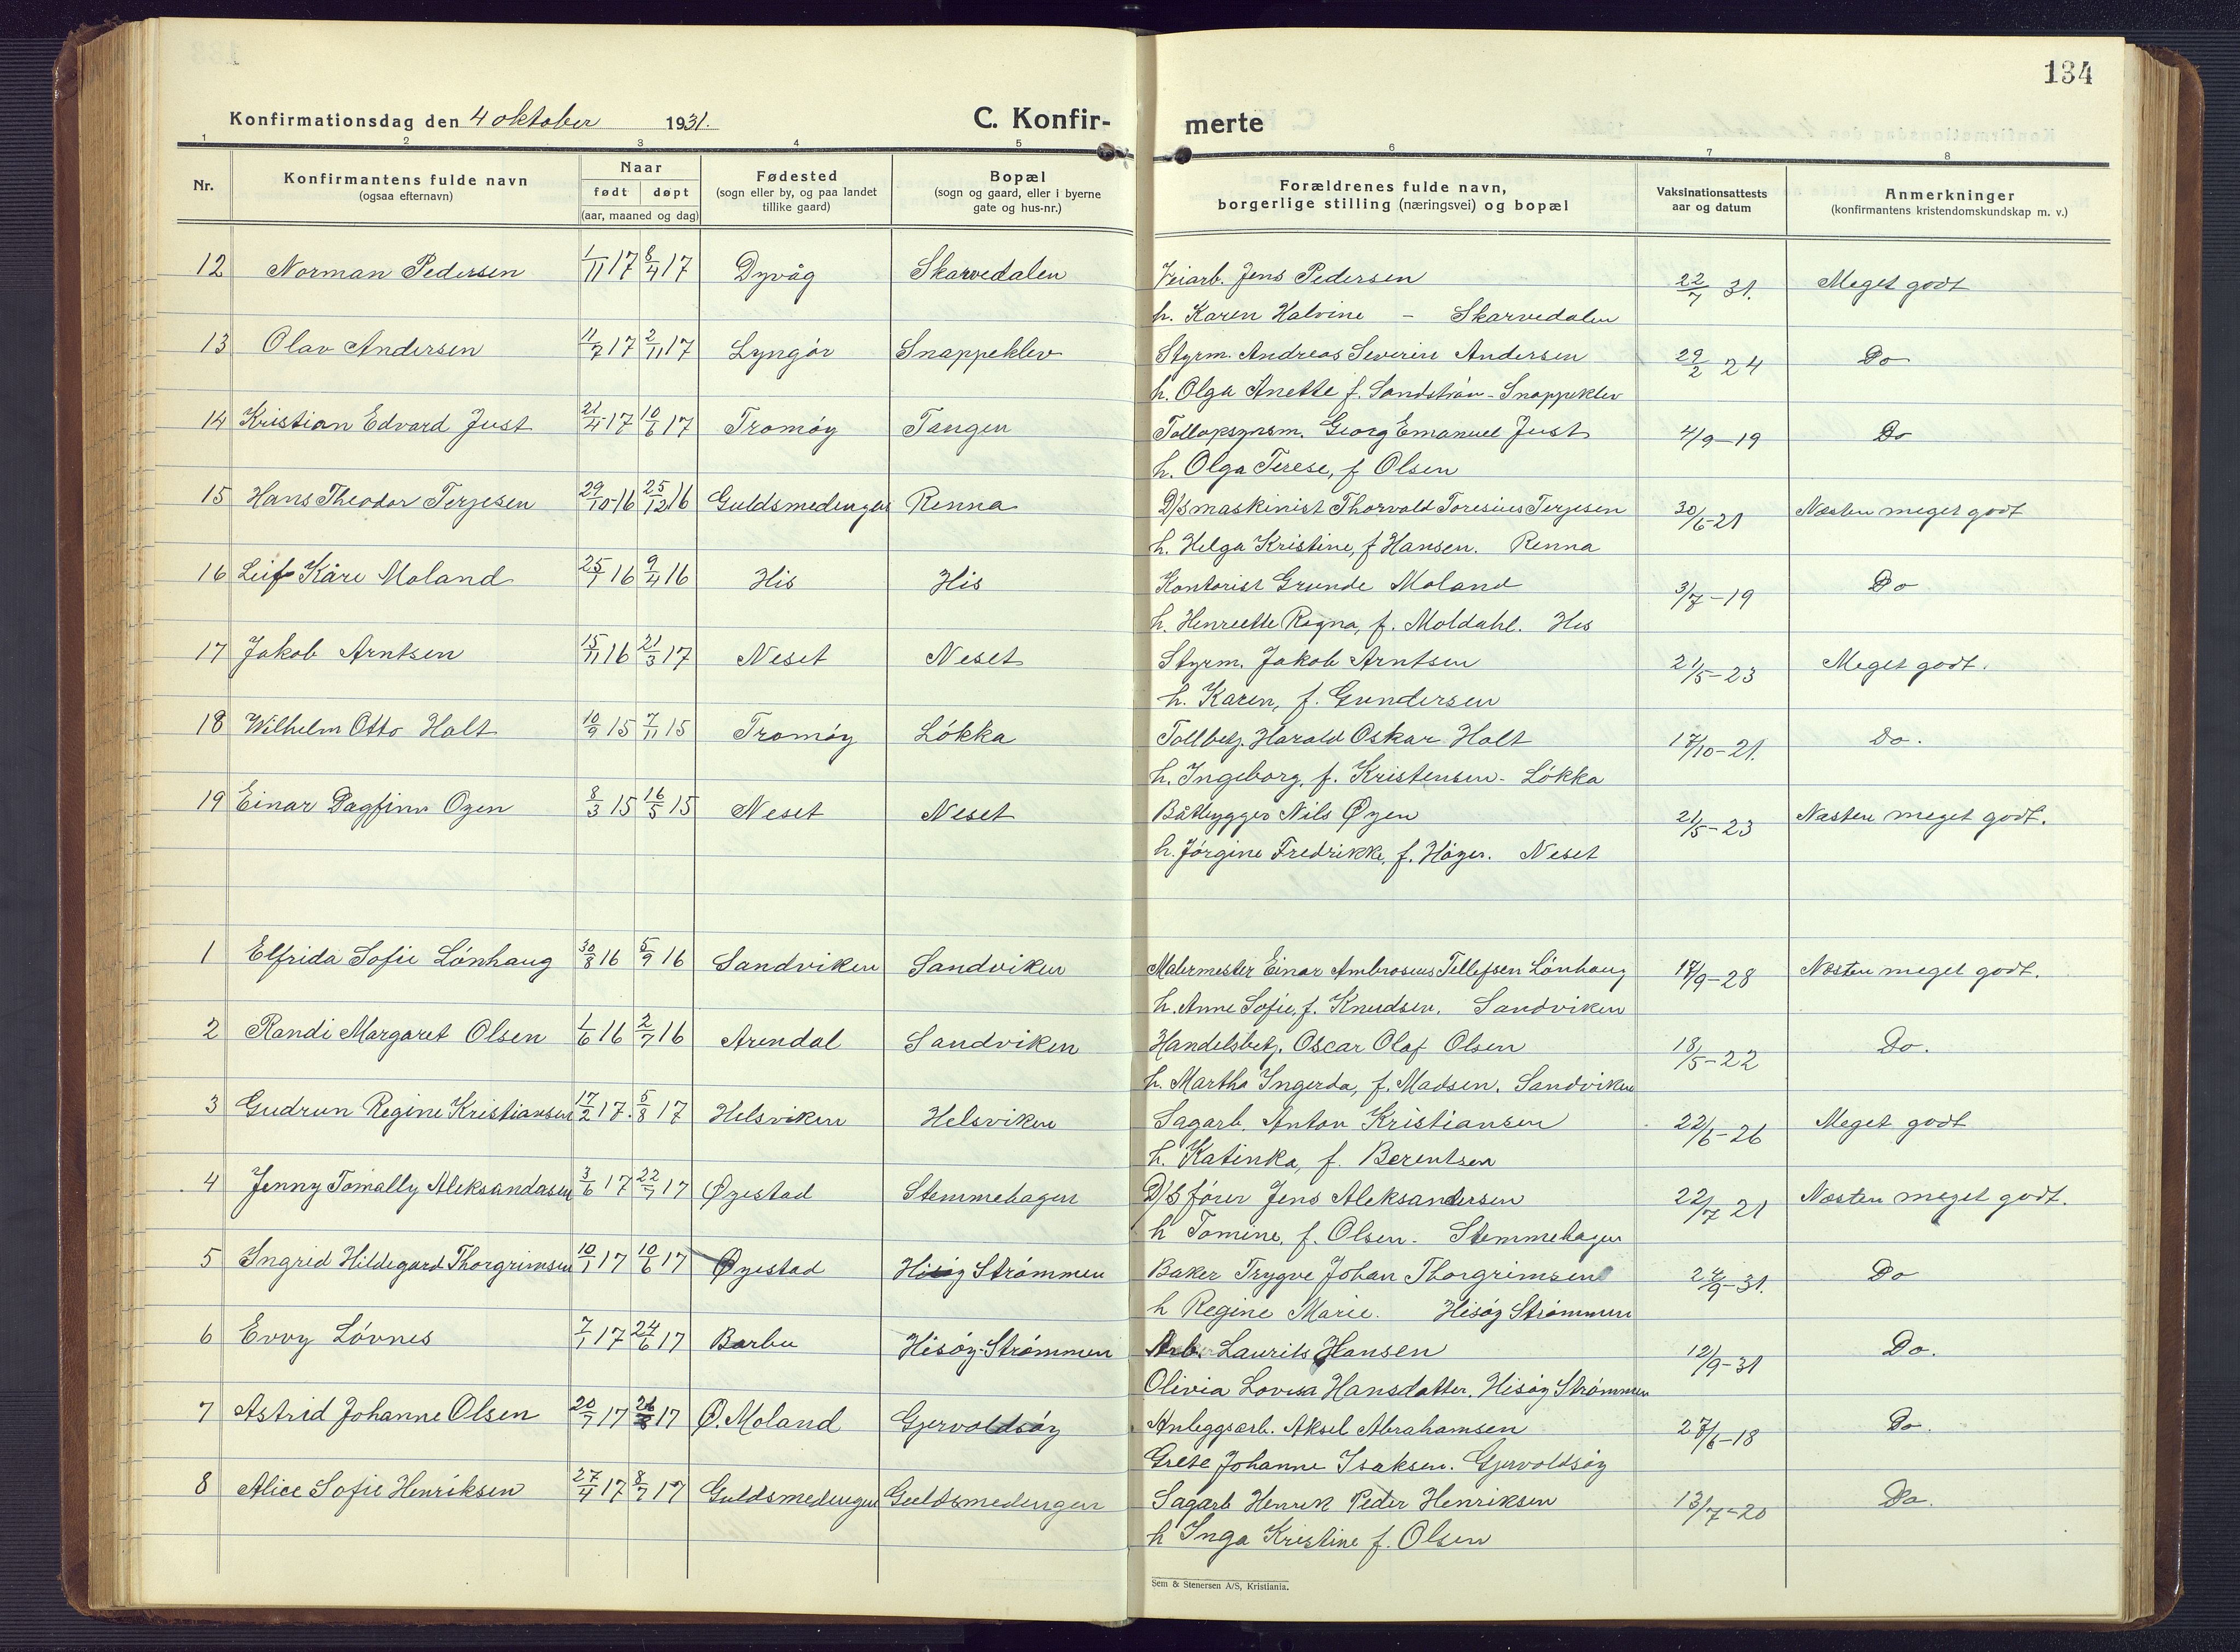 134
Konfirmationsdag den 4 oktober 1931.
C. Konfir- merte
1 2 3 4 5 6 7 8
Nr.
Konfirmantens fulde navn
(ogsaa efternavn)
Naar
født døpt
(aar, maaned og dag)
Fødested
(sogn eller by, og paa landet
tillike gaard)
Bopæl
(sogn og gaard, eller i byerne
gate og hus-nr.)
Forældrenes fulde navn,
borgerlige stilling (næringsvei) og bopæl
Vaksinationsattests
aar og datum
Anmerkninger
(konfirmantens kristendomskundskap m. v.)
12 Norman Pedersen 1/11 17 8/4 17 Dyvåg Skarvedalen Veiarb. Jens Pedersen 22/7 31. Meget godt
h. Karen Halvine - Skarvedalen
13 Olav Andersen 11/7 17 2/11 17 Lyngör Snappeklev Styrm. Andreas Severin Andersen 29/2 24 Do
h. Olga Anette f. Sandström - Snappeklev
14 Kristian Edvard Just 21/4 17 10/6 17 Tromöy Tangen Tollopsynsm. Georg Emanuel Just 4/9-19 Do
h. Olga Terese, f Olsen
15 Hans Theodor Terjesen 29/10-16 25/12 16 Guldsmedengen Renna D/S maskinist Thorvald Toresius Terjesen 30/6-21 Næsten meget godt
h. Helga Kristine, f Hansen. Renna
16 Leif Kåre Moland 25/1 16 9/4 16 His His Kontorist Grunde Moland 3/7-19 Do
h. Henriette Ragna, f. Moldahl. His
17 Jakob Arntsen 15/11 16 21/3 17 Neset Neset Styrm. Jakob Arntsen 21/5-23 Meget godt.
h. Karen, f. Gundersen
18 Wilhelm Otto Holt 10/9 15 7/11 15 Tromöy Lökka Tollbetj. Harald Oskar Holt 17/10-21. Do.
h. Ingeborg, f. Kristensen - Lökka
19 Einar Dagfinn Oyen 8/3 15 16/5 15 Neset Neset Båtbygger Nils Øyen 21/5-23 Næsten meget godt.
h. Jörgine Fredrikke, f. Höyer. Neset
1 Elfrida Sofie Lönhaug 30/8 16 5/9 16 Sandviken Sandviken Malermester Einar Ambrosius Tellefsen Lönhaug 17/9-28 Næsten meget godt.
h. Anne Sofie, f. Knudsen. Sandviken
2 Randi Margaret Olsen 1/6 16 2/7 16 Arendal Sandviken Handelsbetj. Oscar Olaf Olsen 18/5-22 Do.
h. Martha Ingerda, f. Madsen. Sandviken
3 Gudrun Regine Kristiansen 17/2 17. 5/8 17 Helsviken Helsviken Sagarb. Anton Kristiansen 22/6-26 Meget godt
h. Katinka, f. Berentsen
4 Jenny Tomally Aleksandasen 3/6 17 22/7 17 Øyestad Stemmehagen D/S förer Jens Aleksandersen 22/7 21 Næsten meget godt.
h Tomine, f. Olsen - Stemmehagen
5 Ingrid Hildegard Thorgrimsen 10/1 17 10/6 17 Øyestad Hisöy Strömmen Baker Trygve Johan Thorgrimsen 24/9-31. Do
h Regine Marie. Hisöy Strömmen
6 Evvy Lövnes 7/1 17 24/6 17 Barbu Hisöy-Strömmen Arb. Laurits Hansen 12/9-31 Do.
Olivia Lovisa Hansdatter. Hisöy Strömmen
7 Astrid Johanne Olsen 20/7 17 26/8 17 Ø. Moland Gjervoldsöy Anleggsarb. Aksel Abrahamsen 27/6-18 Do.
Grete Johanne Isaksen. Gjervoldsöy
8 Alice Sofie Henriksen 27/4 17 8/7 17 Guldsmedengen Guldsmedengen Sagarb Henrik Peder Henriksen 13/7-20 Do.
h Inga Kristine f. Olsen
Sem & Stenersen A/S, Kristiania.